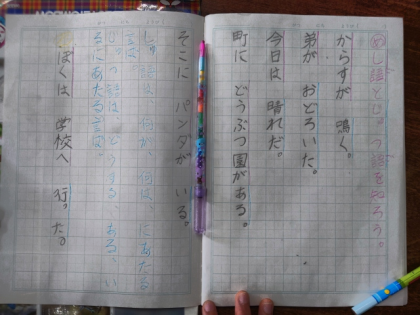 主語とじゅつ語を知ろう。
からすが 鳴く。
弟が おどろいた。
今日は 晴れだ。
町に どうぶつ園がある。
そこに パンダが いる。
主語は、何が、何は、にあたる
言葉
じゅつ語は、どうする、ある、い
るにあたる言葉
ぼくは 学校へ 行った。